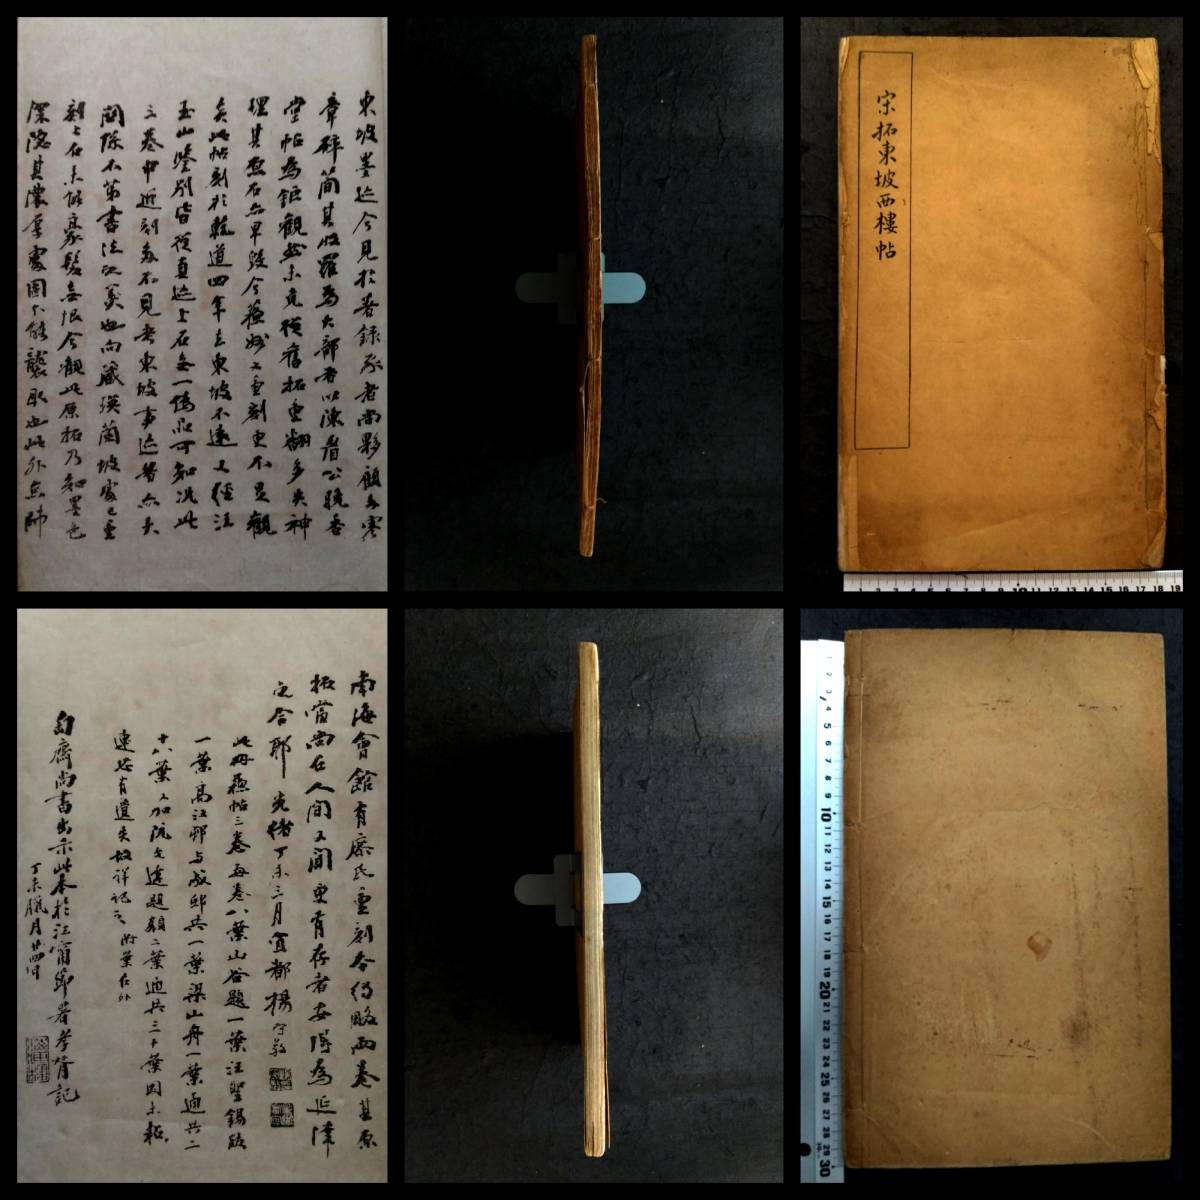 東坡墨迹今見於著錄家者尚夥顧多零
章碎簡其收羅為大部者以陳眉公晚香
堂帖為鉅觀然未免從舊拓重翻多失神
理其原石亦早毀今蘇州之重刻更不足觀
矣此帖刻於乾道四年去東坡不遠又經汪
玉山鑒別皆從真迹上石無一偽品可知況此
三卷中近刻多不見考東坡事迹者亦大
關係不第書法之美也向藏瑛蘭坡處已重
刻上石未脩豪髮無恨今觀此原拓乃知墨色
深隱其濃厚處固不能襲取也此外京師
南海會館有廉氏重刻本約略兩卷其原
拓當尚在人間又聞更有存者安得為延津
之合耶 光緒丁未三月宜都楊守敬
此冊蘇帖三卷每卷八葉山谷題一葉汪聖錫跋
一葉高江邨與成邸共一葉梁山舟一葉通共二
十八葉又加阮文達題額二葉通共三十葉因未裱
連恐有遺失故詳記之 附葉在外
匋齋尚書出示此本於江甯節署孝胥記
丁未臘月廿四日
宋拓東坡西樓帖
1 2 3 4 5 6 7 8 9 10 11 12 13 14 15 16 17 18 19
1 2 3 4 5 6 7 8 9 10 11 12 13 14 15 16 17 18 19 20 21 22 23 24 25 26 27 28 29 30